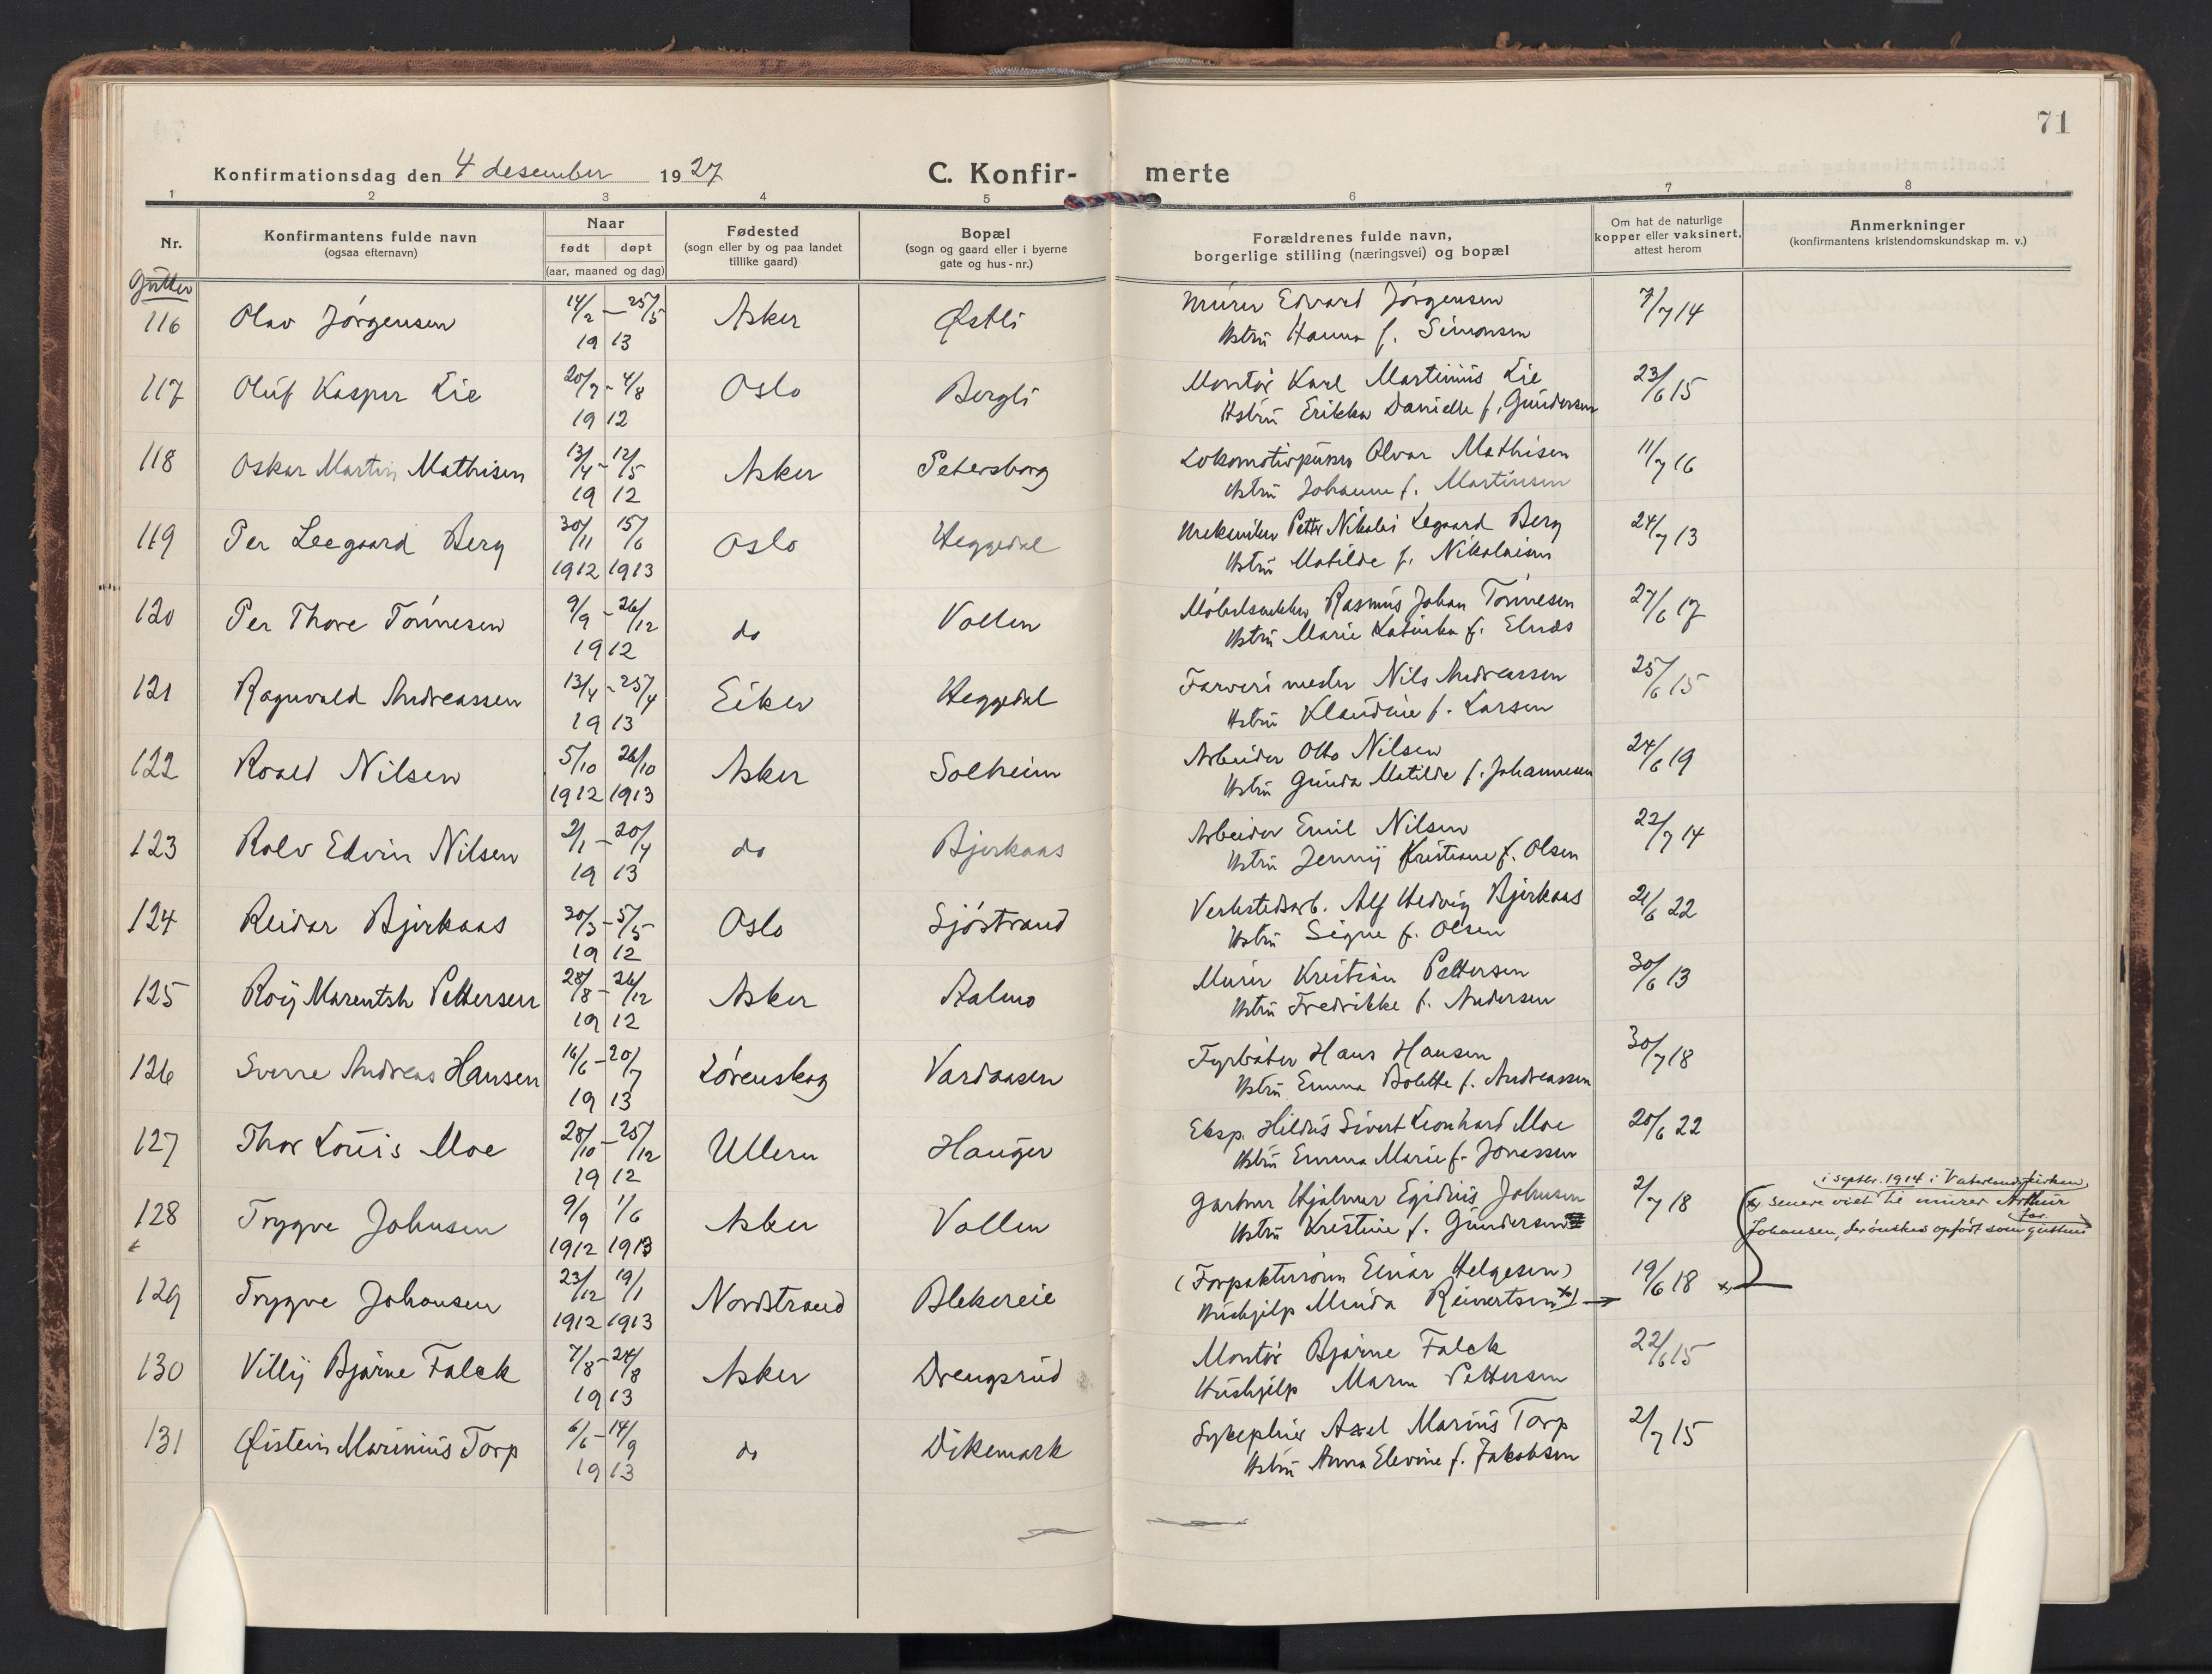 71
Konfirmationsdag den 4 desember 1927
C. Konfir- merte
1 2 3 4 5 6 7 8
Nr.
Konfirmantens fulde navn
(ogsaa efternavn)
Naar
født døpt
(aar, maaned og dag)
Fødested
(sogn eller by og paa landet
tillike gaard)
Bopæl
(sogn og gaard eller i byerne
gate og hus-nr.)
Forældrenes fulde navn,
borgerlige stilling (næringsvei) og bopæl
Om hat de naturlige
kopper eller vaksinert,
attest herom
Anmerkninger
(konfirmantens kristendomskundskap m. v.)
Gutter
116 Olav Jörgensen 14/2 – 25/5 1913 Asker Østli Murer Edvard Jörgensen 7/7 14
Hstru Hanna f. Simonsen
117 Oluf Kasper Lie 20/7 - 4/8 1912 Oslo Bergli Montör Karl Martinius Lie 23/6 15
Hstru Erikka Danielle f. Gundersen
118 Oskar Martin Mathisen 13/4 - 12/5 1912 Asker Petersborg Lokomotivpusser Olvar Mathisen 11/7 16
Hstru Johanne f. Martinsen
119 Per Leegaard Berg 30/11 1912 15/6 1913 Oslo Heggedal Petter Nikolai Legaard Berg 24/7 13
Hstru Matilde f. Nikolaisen
120 Per Thore Tönnesen 9/9 - 26/12 1912 do Vollen Möbelsnekker Rasmus Johan Tönnesen 27/6 17
Hstru Marie Katinka f. Elnæs
121 Ragnvald Andreassen 13/4 - 25/4 1913 Eiker Heggedal Farveri mester Nils Andreassen 25/6 15
Hstru Klaudine f. Larsen
122 Roald Nilsen 5/10 1912 26/10 1913 Asker Solheim Arbeider Otto Nilsen 24/6 19
Hstru Gunda Matilde f. Johannesen
123 Rolv Edvin Nilsen 2/1 - 20/4 1913 do Bjerkaas Arbeider Emil Nilsen 22/7 14
Hstru Jenny Kristiane f. Olsen
124 Reidar Bjerkaas 30/3 - 5/5 1912 Oslo Sjöstrand Verkstedsarb. Alf Hedvig Bjerkaas 21/6 22
Hstru Signe f. Olsen
125 Roy Marentsh Pettersen 28/8 - 26/12 1912 Asker Aalmo Murer Kristian Pettersen 30/6 13
Hstru Fredrikke f. Andersen
126 Sverre Andreas Hansen 16/6 - 20/7 1913 Lörenskog Vardaasen Fyrböter Hans Hansen 30/7 18
Hstru Emma Bolette f. Andreassen
127 Thor Louis Moe 28/10 - 25/12 1912 Ullern Hauger Eksp. Hildus Sivert Leonhard Moe 20/6 22
Hstru Emma Marie f. Jonassen
128 Trygve Johnsen 9/9 1912 1/6 1913 Asker Vollen Gartner Hjalmar Egidius Johnsen 2/7 18
Hstru Kristine f. Gundersen
i septbr. 1914 i Vaterlandskirken
x) senere viet til murer Arthur
Johansen, der önskes opfört som guttens far.
129 Trygve Johansen 23/12 1912 19/1 1913 Nordstrand Blekereie (Forpaktersönn Einar Helgesen) 19/6 18 x)
Hushjelp Minda Reinertsen x)
130 Villy Bjarne Falck 7/8 - 24/8 1913 Asker Drengsrud Montör Bjarne Falck 22/6 15
Hushjelp Maren Pettersen
131 Øistein Marinius Torp 6/6 - 14/9 1913 do Dikemark Sykepleier Axel Marius Torp 2/7 15
Hstru Anna Elevine f. Jakobsen